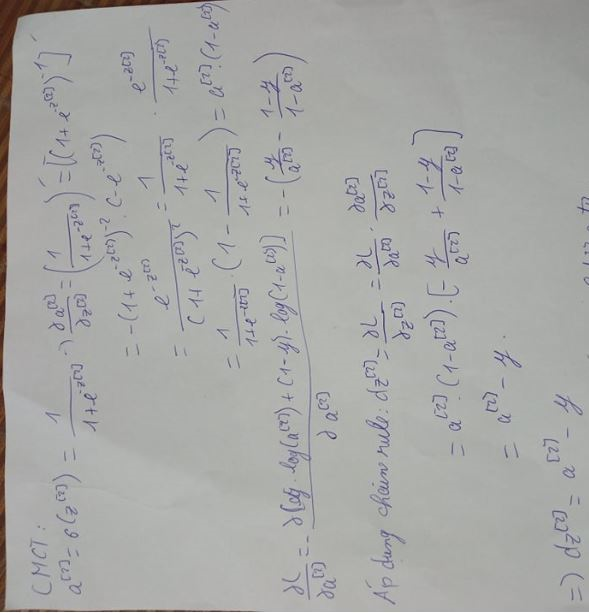 CMCT:
a^[2] = σ(z^[2]) = 1/(1+e^-z^[2]) → ∂a^[2]/∂z^[2] = (1/(1+e^-z^[2]))' = [(1+e^-z^[2])^-1]'
= -(1+e^-z^[2])^-2 · (-e^-z^[2])
= e^-z^[2]/(1+e^-z^[2])^2 = 1/(1+e^-z^[2]) · e^-z^[2]/(1+e^-z^[2])
= 1/(1+e^-z^[2]) · (1 - 1/(1+e^-z^[2])) = a^[2] · (1-a^[2])
∂L/∂a^[2] = - ∂[y·log(a^[2]) + (1-y)·log(1-a^[2])]/∂a^[2] = -(y/a^[2] - (1-y)/(1-a^[2]))
Áp dụng chain rule: dz^[2] = ∂L/∂z^[2] = ∂L/∂a^[2] · ∂a^[2]/∂z^[2]
= a^[2] · (1-a^[2]) · [-y/a^[2] + (1-y)/(1-a^[2])]
= a^[2] - y.
=) dz^[2] = a^[2] - y